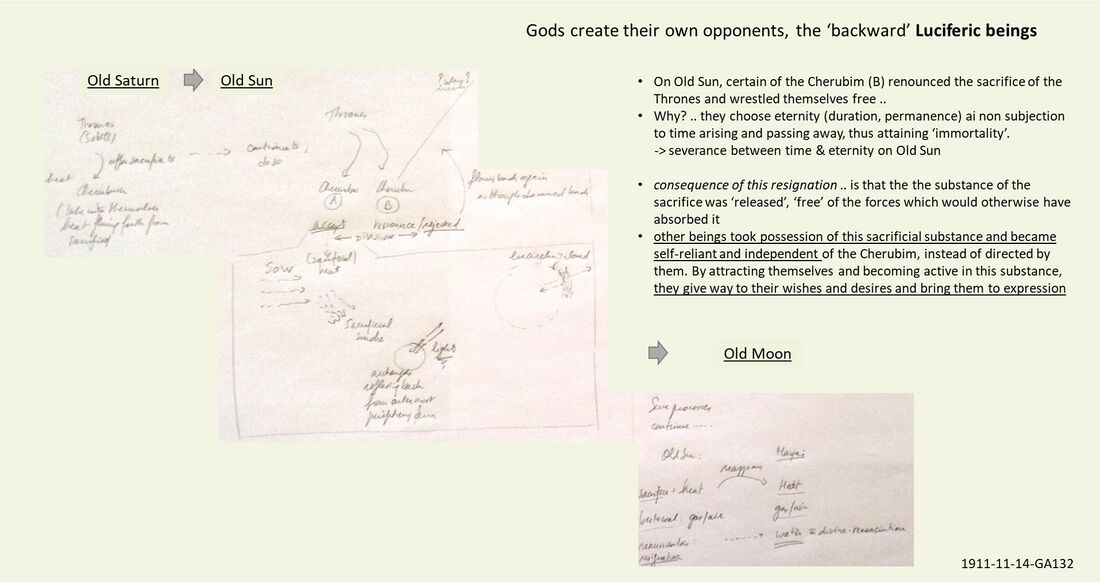 Gods create their own opponents, the ‘backward’ Luciferic beings
Old Saturn
Old Sun
• On Old Sun, certain of the Cherubim (B) renounced the sacrifice of the
Thrones and wrestled themselves free ..
• Why? .. they choose eternity (duration, permanence) ai non subjection
to time arising and passing away, thus attaining ‘immortality’.
-> severance between time & eternity on Old Sun
• consequence of this resignation .. is that the the substance of the
sacrifice was ‘released’, ‘free’ of the forces which would otherwise have
absorbed it
• other beings took possession of this sacrificial substance and became
self-reliant and independent of the Cherubim, instead of directed by
them. By attracting themselves and becoming active in this substance,
they give way to their wishes and desires and bring them to expression
?why?
Thrones
offer sacrifice to
heat
Cherubim
(take into themselves
heat flowing forth from
sacrifice)
continue to
do so
Thrones
Cherubim
A
Cherubim
B
accept
renounce/rejected
DIVISION
flows back again
as though dammed back
(sacrificial)
heat
encircling cloud
sacrificial
smoke
light
archangels
reflecting back
from outermost
periphery
Old Moon
Same processes
continue .....
Old Sun:
reappear
sacrifice = heat
Heat
bestowal: gas/air
gas/air
renunciation
resignation
water = divine renunciation
1911-11-14-GA132